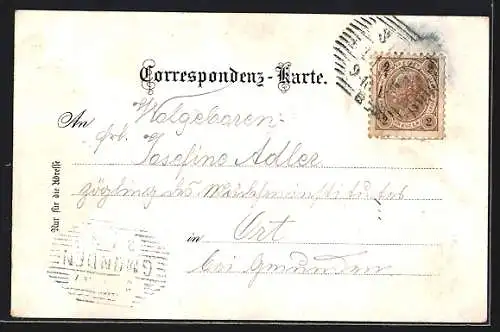 Correspondenz-Karte.
An Wolgeboren
Frl. Josefine Adler
Zögling des
in Ort
bei Gmunden
Nur für die Adresse
GMUNDEN
2